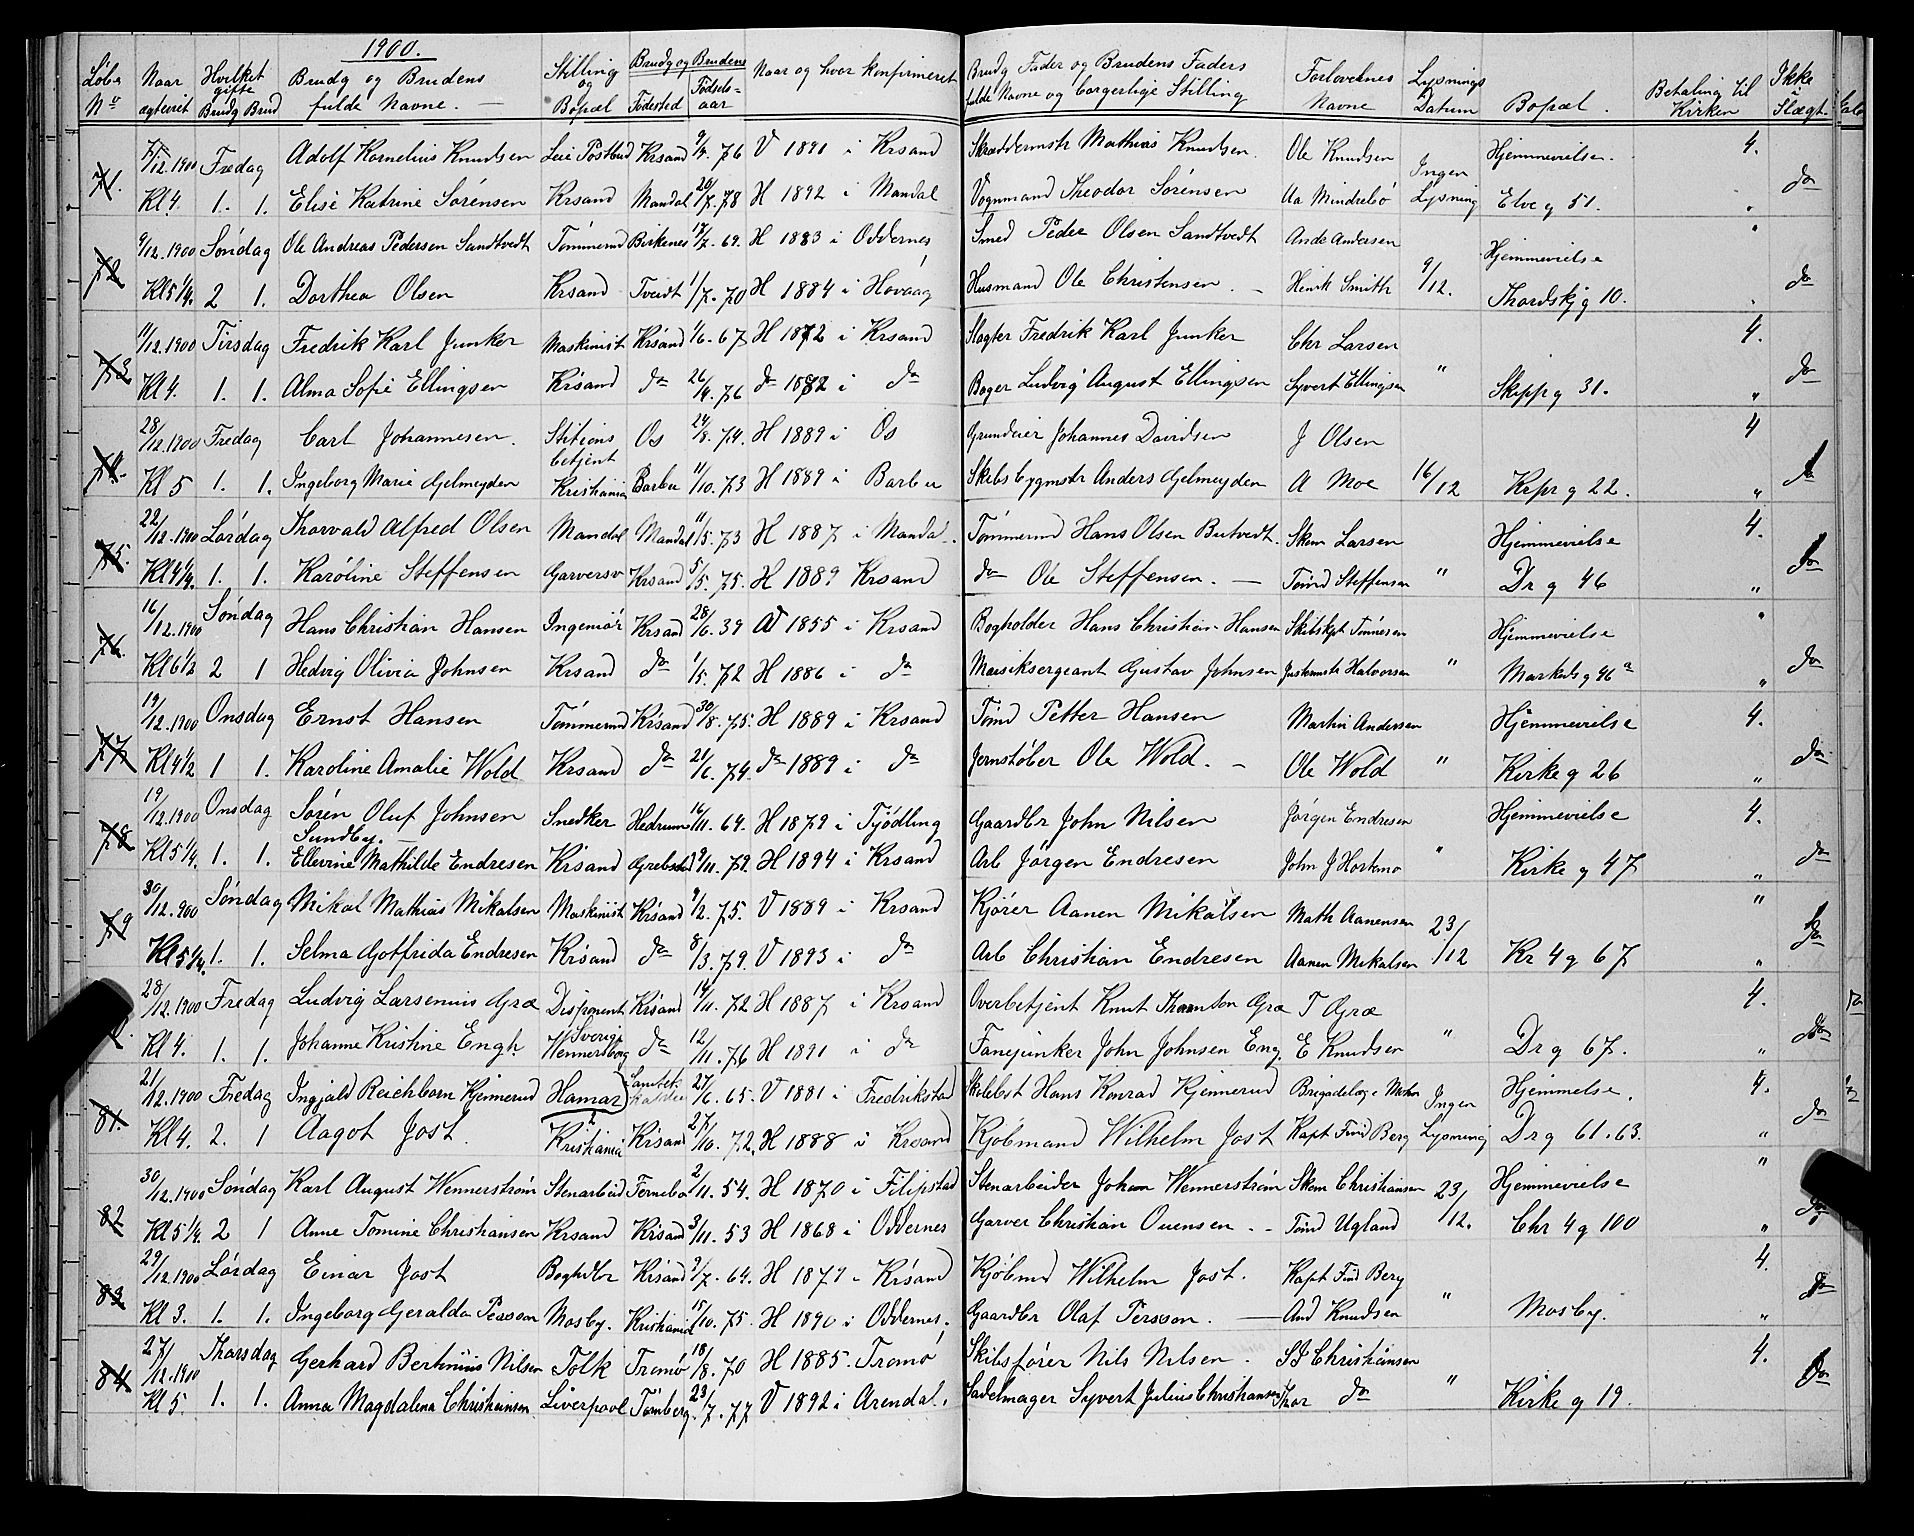 1900.
Løbe No | Naar ægteviet | Hvilket gifte Brudg Brud | Brudg og Brudens fulde Navne. — | Stilling og Bopæl | Brudg og Brudens Fødested | Fødselsaar | Naar og hvor konfirmeret | Brudg Fader og Brudens Faders fulde Navne og borgerlige Stilling | Forlovernes Navne | Lysnings Datum | Bopæl. | Betaling til Kirken | Ikke i Slægt.
71. 7/12.1900 Fredag Adolf Kornelius Knudsen Postbud Krsand 9/4.76 V 1891 i Krsand Skræddermstr Mathias Knudsen. Ole Knudsen Ingen Hjemmevielse. 4.
Kl 4. 1. 1. Elise Katrine Sørensen Krsand Mandal 20/7.78 H 1892 i Mandal Vognmand Theodor Sørensen Aa Mindrebø Lysning Elve g 51. " do
72 9/12.1900 Søndag Ole Andreas Pedersen Sandtvedt Tømmermd Birkenes 17/7.69. H 1883 i Oddernes Smed Peder Olsen Sandtvedt Ande Andersen Hjemmevielse "
Kl 5 1/4. 2 1. Dorthea Olsen Krsand Tveidt 1/7.70 H 1884 i Høvaag Husmand Ole Christensen. — Henrik Smith 9/12. Thordskj g 10. do
73 11/12.1900 Tirsdag Fredrik Karl Junker Maskinist Krsand 1/6.67 H 1872 i Krsand Slagter Fredrik Karl Junker Chr Larsen 4.
Kl 4. 1. 1. Alma Sofie Ellingsen Krsand do 26/4.76 do 1882 i do Bager Ludvig August Ellingsen Syvert Ellingsen " Skipp g 31. " do
74. 28/12.1900 Fredag Carl Johannesen. Stitions betjent Os 24/8.74. H 1889 i Os Grundeier Johannes Davidsen J Olsen 4
Kl 5 1. 1. Ingeborg Marie Gjelmeyden Kristiania Barbu 11/10.73 H 1889 i Barbu Skibsbygmstr Anders Gjelmeyden A Moe 16/12 Krpr g 22. " do
75. 22/12.1900 Lørdag Thorvald Alfred Olsen Mandal Mandal 11/5.73 H 1887 i Manda. Tømmermd Hans Olsen Butvedt. Skom Larsen Hjemmevielse 4.
Kl 4 1/4. 1. 1. Karoline Steffensen Garversv Krsand 5/5.75. H 1889 Krsand do Ole Steffensen. — Tømd Steffensen " Dr g 46 " do
76. 16/12.1900 Søndag Hans Christian Hansen Ingeniør Krsand 28/6.39 V 1855 i Krsand Bogholder Hans Christian Hansen Skibskpt Tønnesen Hjemmevielse "
Kl 6 1/2 2 1 Hedvig Olivia Johnsen Krsand do 1/5.72 H 1886 i do Musiksergeant Gustav Johnsen Halvorsen " Markeds g 46a " do
77 19/12.1900 Onsdag Ernst Hansen Tømmermd Krsand 30/8.75. H 1889 i Krsand Tømd Petter Hansen Martin Andersen Hjemmevielse 4.
Kl 4 1/2 1 1. Karoline Amalie Wold Krsand do 21/6.74. do 1889 i do Jernstøber Ole Wold. — Ole Wold " Kirke g 26 " do
78 19/12.1900 Onsdag Søren Oluf Johnsen Sundby. Snedker Hedrum 16/11.64. H 1879 i Tjødling Gaardbr John Nilsen Jørgen Endresen Hjemmevielse 4.
Kl 5 1/4. 1. 1. Ellevine Mathilde Endresen Krsand Grebstad 9/11.79. H 1894 i Krsand Arb Jørgen Endresen John J Horkmo " Kirke g 47 " do
79 30/12.900 Søndag Mikal Mathias Mikalsen Maskinist Krsand 9/2.75. V 1889 i Krsand Kjører Aanen Mikalsen Math Aanensen "
Kl 5 1/4. 1. 1. Selma Gotfrida Endresen Krsand do 8/3.79. V 1893 i do Arb Christian Endresen Aanen Mikalsen 23/12 Kr 4 g 67 " do
28/12.1900 Fredag Ludvig Larsenius Græ Disponent Krsand 14/11.72 H 1887 i Krsand Overbetjent Knut Græ T Græ 4.
Kl 4. 1. 1. Johanne Kristine Engh. Sverige Wennersborg do 12/11.76 H 1891 i do Fanejunker John Johnsen Eng. E Knudsen " Dr g 67. " do
81. 21/12.1900 Fredag Ingjald Reichborn Kjennerud Hamar 27/6.65. V 1881 i Fredrikstad Skolebst Hans Konrad Kjennerud Brigadelæge Mohn Ingen Hjemmelse. 4.
Kl 4. 2. 1 Aagot Jost. Kristiania Krsand 27/10.72. H 1888 i Krsand Kjøbmand Wilhelm Jost Kapt Find Berg Lysning Dr g 61.63. " do
82 30/12.1900 Søndag Karl August Wennerstrøm Stenarbeid Fernebo 2/11.54. H 1870 i Filipstad Stenarbeider Johan Wennerstrøm Skom Christiansen 23/ Hjemmevielse "
Kl 5 1/4. 2 1 Anne Tomine Christiansen Krsand Krsand 3/11.53 H 1868 i Oddernes Garver Christian Ouensen. — Tømd Ugland /12. Chr 4 g 100 " do
83 29/12.1900 Lørdag Einar Jost Boghdlr Krsand 9/7.64. H 1879 i Krsand Kjøbmd Wilhelm Jost. Kapt Find Berg 4.
Kl 3. 1. 1. Ingeborg Geralda Persson Mosby. Kristiania 15/10.75. H 1890 i Oddernes. Gaardbr Olaf Persson. — And Knudsen " Mosby. " do
84 27/12.1900 Thorsdag Gerhard Bertinius Nilsen Tolk Tromø 18/8.70 H 1885. Tromø Skibsfører Nils Nilsen. S J Christiansen 4.
Kl 5. 1. 1. Anna Magdalena Christiansen Liverpool Tønsberg 23/7.77 V 1892 i Arendal. Sadelmager Syvert Julius Christiansen Thor do " Kirke g 19. do